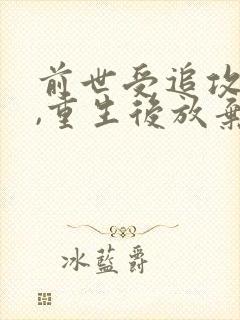 前世受追攻
,重生後放棄
冰藍爵